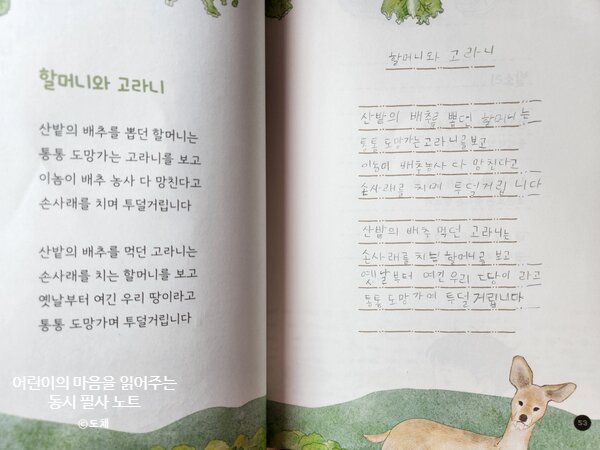 할머니와 고라니
산밭의 배추를 뽑던 할머니는
통통 도망가는 고라니를 보고
이놈이 배추 농사 다 망친다고
손사래를 치며 투덜거립니다
산밭의 배추를 먹던 고라니는
손사래를 치는 할머니를 보고
옛날부터 여긴 우리 땅이라고
통통 도망가며 투덜거립니다
어린이의 마음을 읽어주는
동시 필사 노트
©도체
할머니와 고라니
산밭의 배추를 뽑던 할머니는
통통 도망가는 고라니를 보고
이놈이 배추농사 다 망친다고
손사래를 치며 투덜거립니다
산밭의 배추 먹던 고라니는
손사래를 치는 할머니를 보고
옛날부터 여긴 우리 땅이 라고
통통 도망가며 투덜거립니다
53